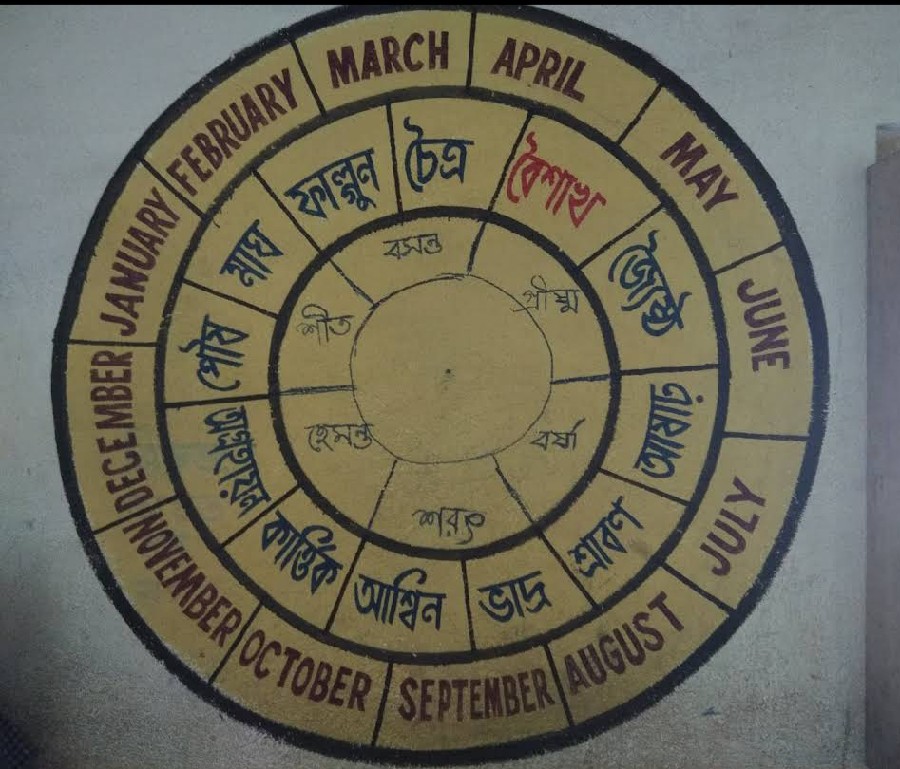 JANUARY
FEBRUARY
MARCH
APRIL
MAY
JUNE
JULY
AUGUST
SEPTEMBER
OCTOBER
NOVEMBER
DECEMBER
বৈশাখ
জ্যৈষ্ঠ
আষাঢ়
শ্রাবণ
ভাদ্র
আশ্বিন
কার্ত্তিক
অগ্রহায়ন
পৌষ
মাঘ
ফাল্গুন
চৈত্র
গ্রীষ্ম
বর্ষা
শরৎ
হেমন্ত
শীত
বসন্ত